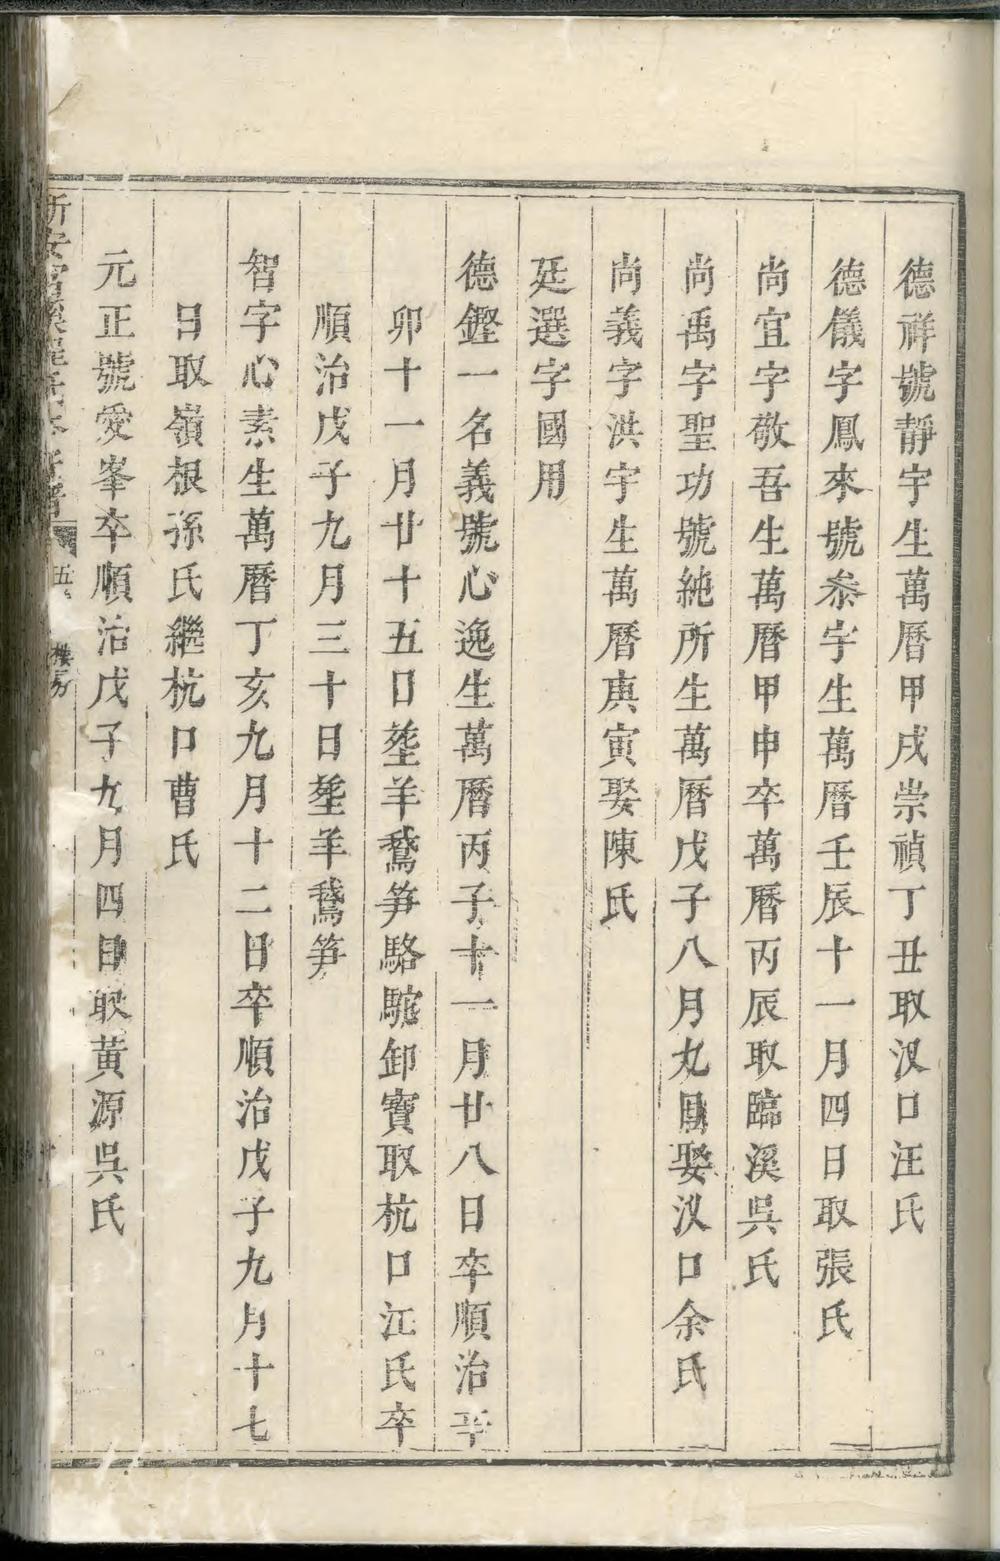 德祥號靜宇生萬曆甲戌崇禎丁丑取汊口汪氏
德儀字鳳來號叅宇生萬曆壬辰十一月四日取張氏
尚宜字敬吾生萬曆甲申卒萬曆丙辰取臨溪吳氏
尚禹字聖功號純所生萬曆戊子八月九日娶汊口余氏
尚義字洪宇生萬曆庚寅娶陳氏
廷選字國用
德鏗一名義號心逸生萬曆丙子十一月廿八日卒順治辛
卯十一月廿十五日塟羊鵞笋駱駝卸寶取杭口江氏卒
順治戊子九月三十日塟羊鵞笋
智字心素生萬曆丁亥九月十二日卒順治戊子九月十七
日取嶺根孫氏繼杭口曹氏
元正號愛峯卒順治戊子九月四日取黃源吳氏
新安富溪程氏本宗譜 五 樓房